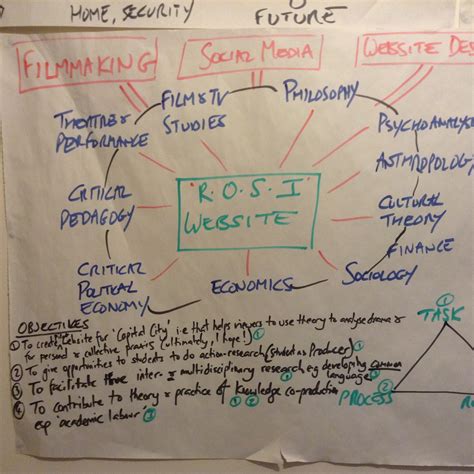 HOME, SECURITY
FUTURE
FILMMAKING
SOCIAL MEDIA
WEBSITE DES
THEATRE &
PERFORMANCE
FILM & TV
STUDIES
PHILOSOPHY
PSYCHOANALYS
ANTHROPOLOGY
CRITICAL
PEDAGOGY
"R.O.S.I"
WEBSITE
CULTURAL
THEORY
FINANCE
CRITICAL
POLITICAL
ECONOMY
ECONOMICS
SOCIOLOGY
OBJECTIVES
① To create website for 'Capital City' i.e that helps viewers to use theory to analyse drama &
for personal & collective praxis (ultimately, I hope!) ①
② To give opportunities to students to do action-research (student as Producer) ①
③ To facilitate inter- & multidisciplinary research, eg developing common
language ①
④ To contribute to theory & practice of knowledge co-production
esp 'academic labour'
① ②
①
TASK
PROCESS ②